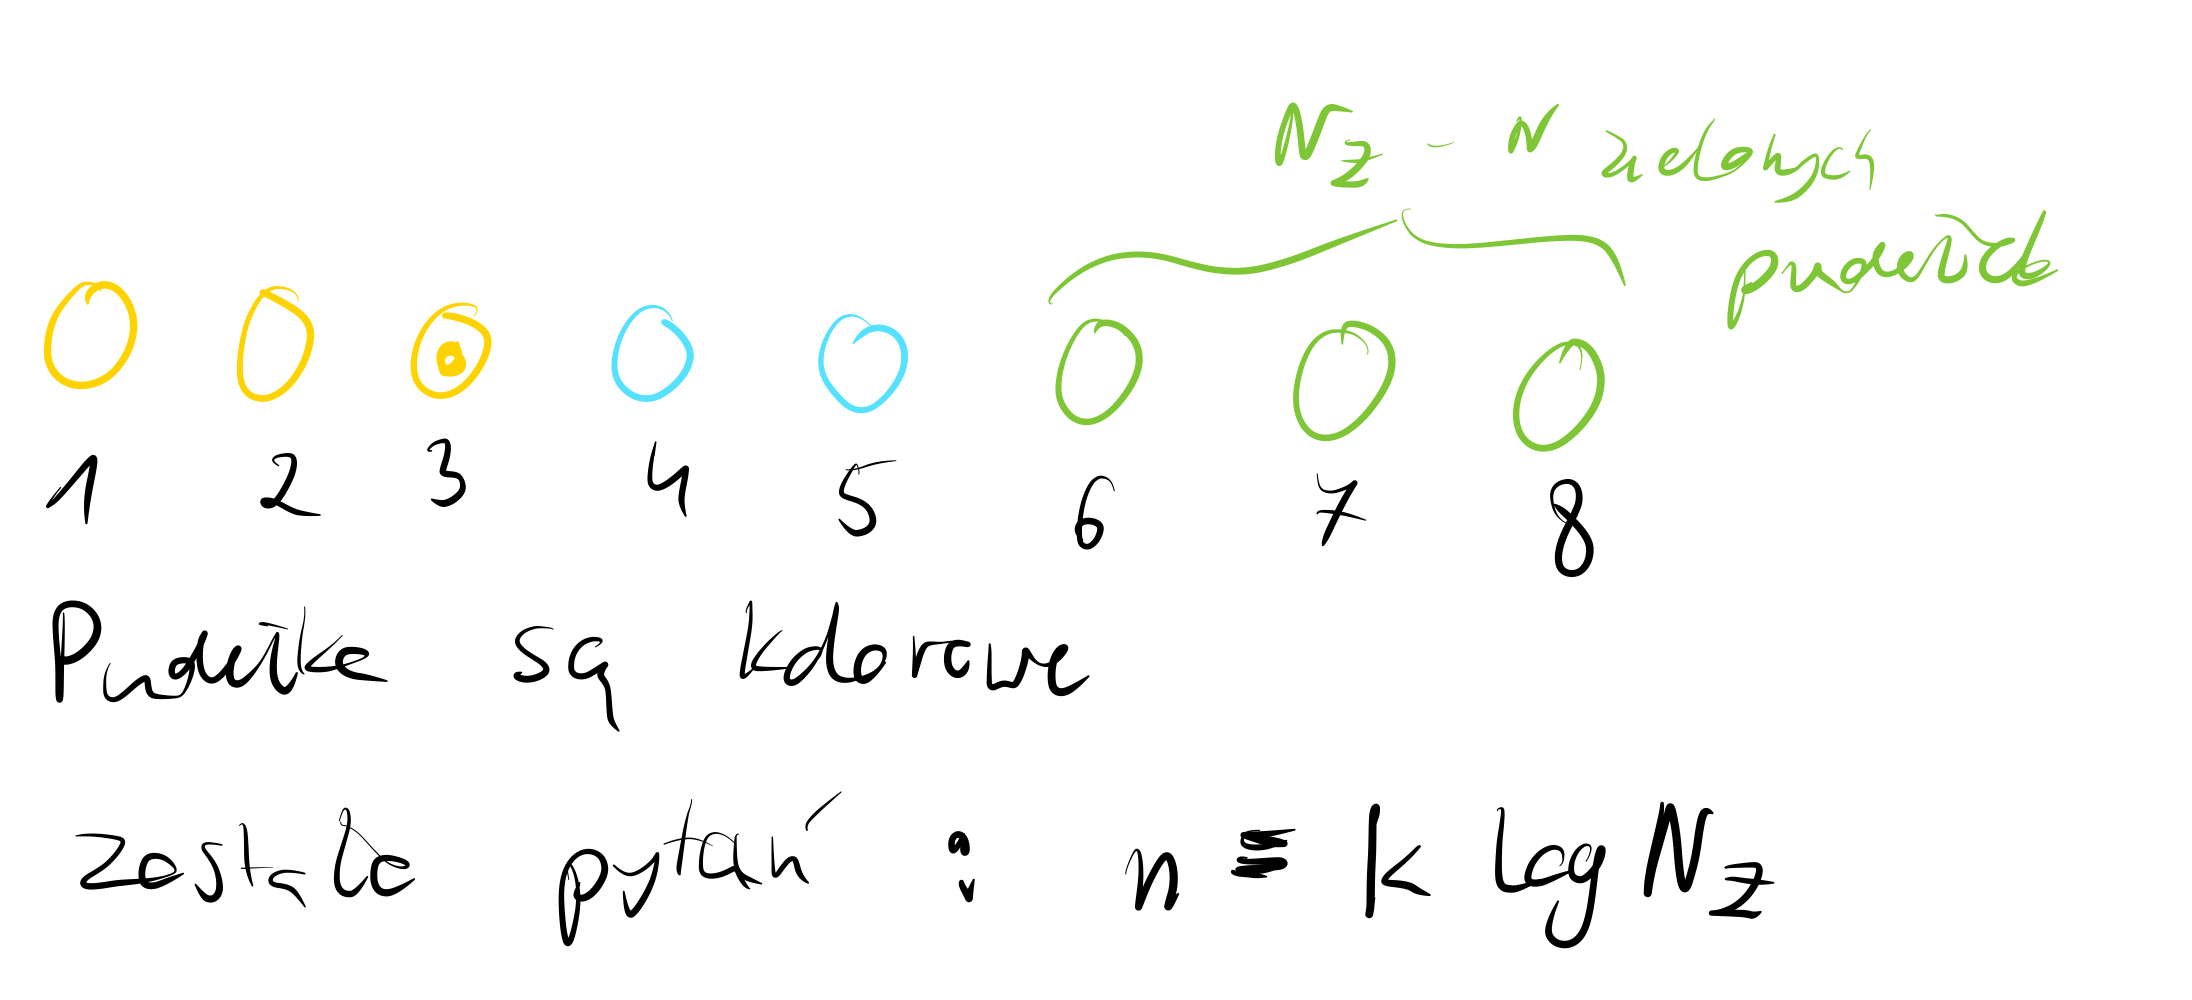 N_z - N zielonych
pudełek
1 2 3 4 5 6 7 8
Pudełka są kolorowe
została pytań : n = k log N_z